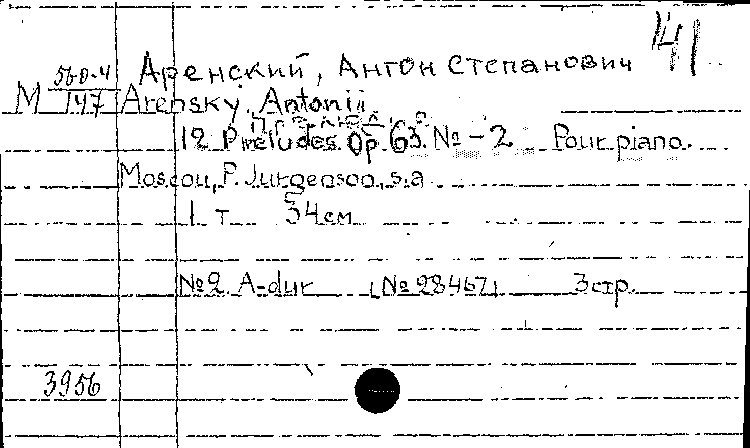 141
М 560-4/147 Аренский, Антон Степанович
Arensky, Antonii
12 Préludes. Op. 63. № -2 Pour piano.
Moscou, P. Jurgenson, s.a
1 т 34 см
№ 2. A-dur (№ 28467) 3 стр.
3956